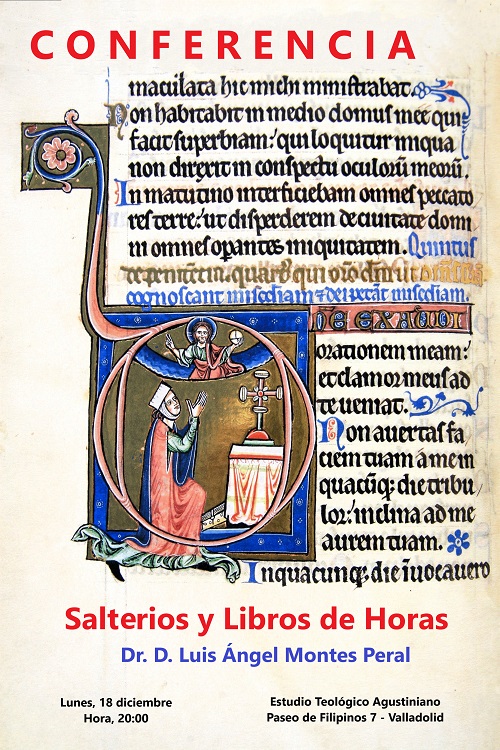 CONFERENCIA
maculata hic michi ministrabat.
Non habitabit in medio domus mee qui
facit superbiam: qui loquitur iniqua
non direxit in conspectu oculorũ meorũ.
In matutino interficiebam omnes peccato
res terre: ut disperderem de ciuitate domi
ni omnes operantes iniquitatem. Quintus
de penitẽtia.
cognoscant
DNE EXAUDI
orationem meam:
et clamor meus ad
te ueniat.
Non auertas fa
ciem tuam a me in
quacũq; die tribu
lor: inclina ad me
aurem tuam.
In quacunq; die inuocauero
Salterios y Libros de Horas
Dr. D. Luis Ángel Montes Peral
Lunes, 18 diciembre
Hora, 20:00
Estudio Teológico Agustiniano
Paseo de Filipinos 7 - Valladolid